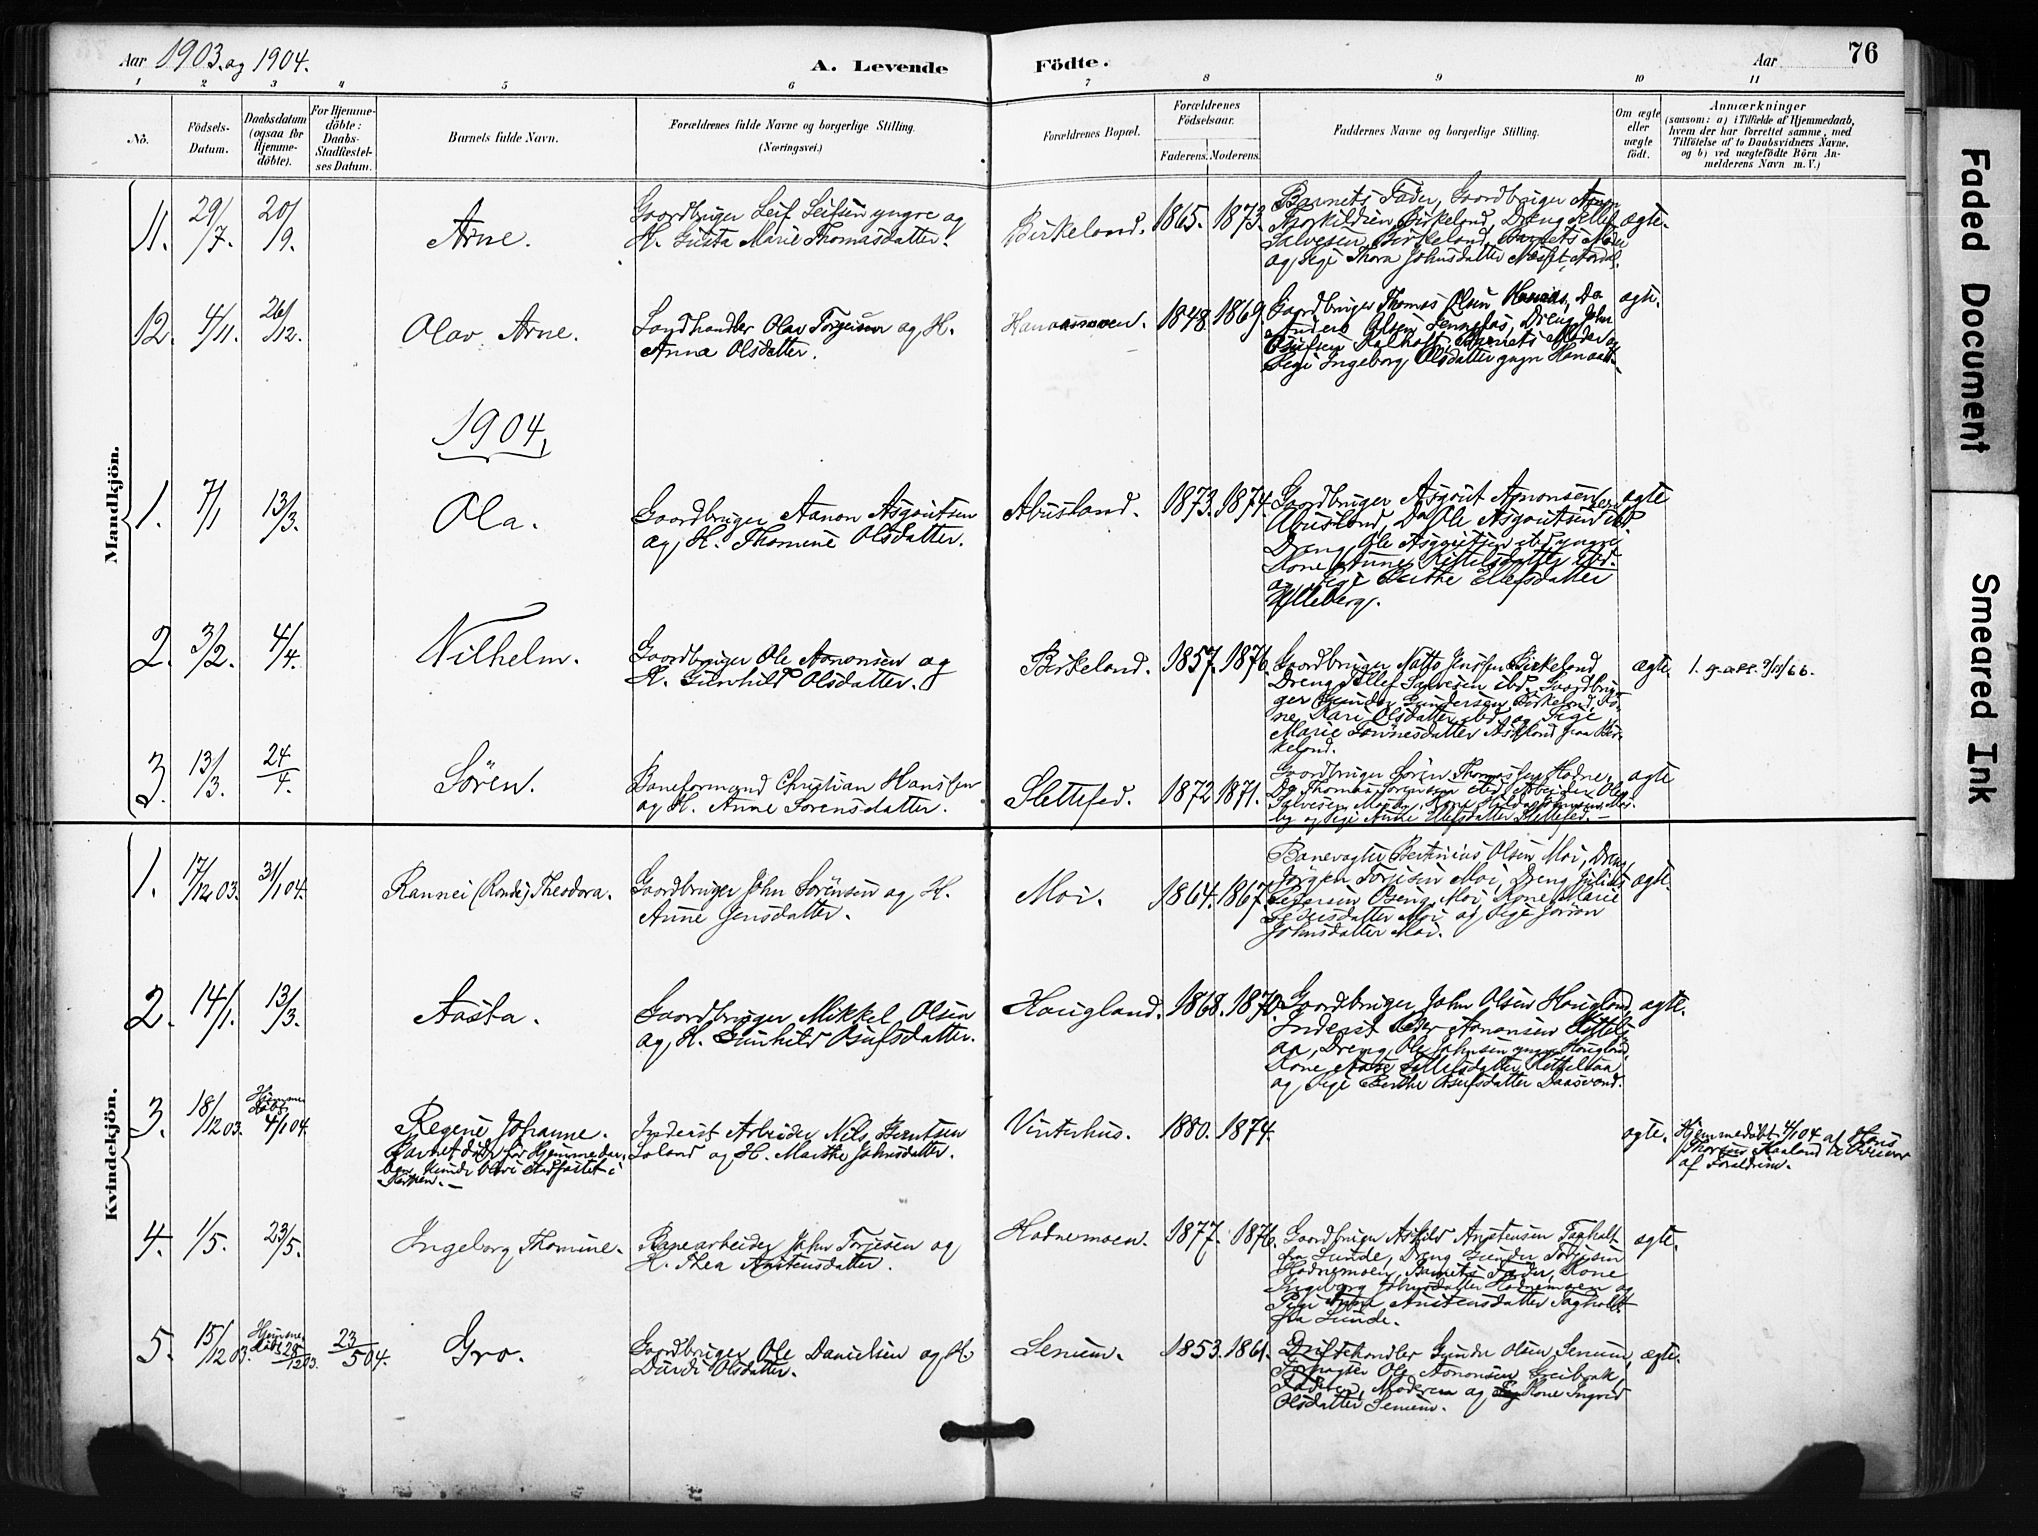 Aar 1903. og 1904.
A. Levende Födte.
Aar
76
1 2 3 4 5 6 7 8 9 10 11
No.
Födsels-Datum.
Daabsdatum (ogsaa for Hjemme-döbte).
For Hjemme-döbte: Daabs-Stadfæstel-ses Datum.
Barnets fulde Navn.
Forældrenes fulde Navne og borgerlige Stilling.
(Næringsvei.)
Forældrenes Bopæl.
Forældrenes Födselsaar.
Faderens. Moderens.
Faddernes Navne og borgerlige Stilling.
Om ægte eller uægte födt.
Anmærkninger
(saasom: a) i Tilfælde af Hjemmedaab,
hvem der har forrettet samme, med
Tilföielse af to Daabsvidners Navne,
og b) ved uægtefödte Börn An-
melderens Navn m. V.)
Mandkjön.
11. 29/7. 20/9. Arne.
Gaardbruger Leif Leifsen yngre og
H. Gusta Marie Thomasdatter.
Birkeland. 1865. 1873.
Barnets Fader, Gaardbruger
Thorkildsen Birkeland, Dreng Tellef
Salvesen Birkeland, Barnets Moder
og Pige Thora Johnsdatter
ægte.
12. 4/11. 26/12. Olav Arne.
Landhandler Olav Torjussen og H.
Anna Olsdatter.
Hanaasmoen. 1848. 1869.
Gaardbruger Thomas Olsen Hanaas, Do
Anders Olsen Senneaas, Dreng John
Kalhoft, Barnets Moder og
Pige Ingeborg Olsdatter yngre Hanaas.
ægte.
1904.
1. 7/1 13/3. Ola.
Gaardbruger Aanon Asgautsen
og H. Thomine Olsdatter.
Abusland. 1873. 1874.
Gaardbruger Asgout Aanonsen
Abusland, Do Ole Asgoutsen ibd
Dreng Ole Asgoutsen ibd yngre
Kone Anne Kittelsdatter ibd.
og Pige Berthe Ellefsdatter
Ylleberg.
ægte
2. 3/2. 4/4. Vilhelm.
Gaardbruger Ole Aanonsen og
H. Gunhild Olsdatter.
Birkeland. 1857. 1876.
Gaardbruger Natto Jenssen Birkeland
Dreng Tellef Salvesen ibd, Gaardbru-
ger Gunder Gundersen Birkeland, Ko-
ne Kari Olsdatter ibd og Pige
Marie Tønnesdatter Askland fra Bir-
keland.
ægte.
3. 13/3. 24/4. Sören.
Baneformand Christian Hanssen
og H. Anne Sorensdatter.
Slettefed. 1872 1871.
Gaardbruger Sören Thomassen Hodne,
Do Thomas Sorensen ibd, Arbeider Ole
Salvesen Mosby, Kone Hilda Hanssen, Mos-
by og Pige Anne Ellefsdatter Slettefed.
ægte
Kvindekjön.
1. 17/12 03. 31/1 04. Rannei (Ronde) Theodora.
Gaardbruger John Sörensen og H.
Anne Jensdatter.
Moi. 1864. 1867.
Banevogter Bertinius Olsen Moi, Dreng
Jörgen Torjesen Moi, Dreng
Moi, Kone Marie
Moi og Pige Joron
Johnsdatter Moi.
ægte.
2. 14/1. 13/3. Aasta.
Gaardbruger Mikkel Olsen
og H. Gunhild Osufsdatter.
Hougland. 1868. 1870.
Gaardbruger John Olsen Hougland,
Inderst Peder Aanonsen Kittels-
aa, Dreng Ole Johnsen yngre Hougland,
Kone Aase Tellefsdatter Kittelsaa
og Pige Berthe Osufsdatter Daasvand.
ægte.
3. 18/12 03. Hjemme-døbt 4/1 04. Regine Johanne.
Barnet døde før Hjemmedaa-
ben kunde blive stadfæstet i
Kirken.
Inderst Arbeider Nils Berntsen
Loland og H. Marthe Johnsdatter.
Vinterhus. 1880. 1874.
ægte.
Hjemmedöbt 4/1 04 af Hans
Thorsen Kaaland
af Foreldrene.
4. 1/5. 23/5. Ingeborg Thomine.
Banearbeider John Torjesen og
H. Thea Anstensdatter.
Hodnemoen. 1877. 1876.
Gaardbruger Anstensen Fagholt
fra Lunde, Dreng Gunder Torjesen
Hodnemoen, Barnets Fader, Kone
Ingeborg Johnsdatter Hodnemoen og
Pige Anna Anstensdatter Fagholt
fra Lunde.
ægte.
5. 15/12 03. Hjemme-döbt 28/12 03. 23/5 04. Gro.
Gaardbruger Ole Danielsen og H.
Durdi Olsdatter.
Senum. 1853. 1861.
Driftehandler Gunder Olsen Senum,
Forpagter Ole Aanonsen Greibrok,
Faderen, Moderen og Kone Ingrid
Olsdatter Senum.
ægte.
Faded Document
Smeared Ink